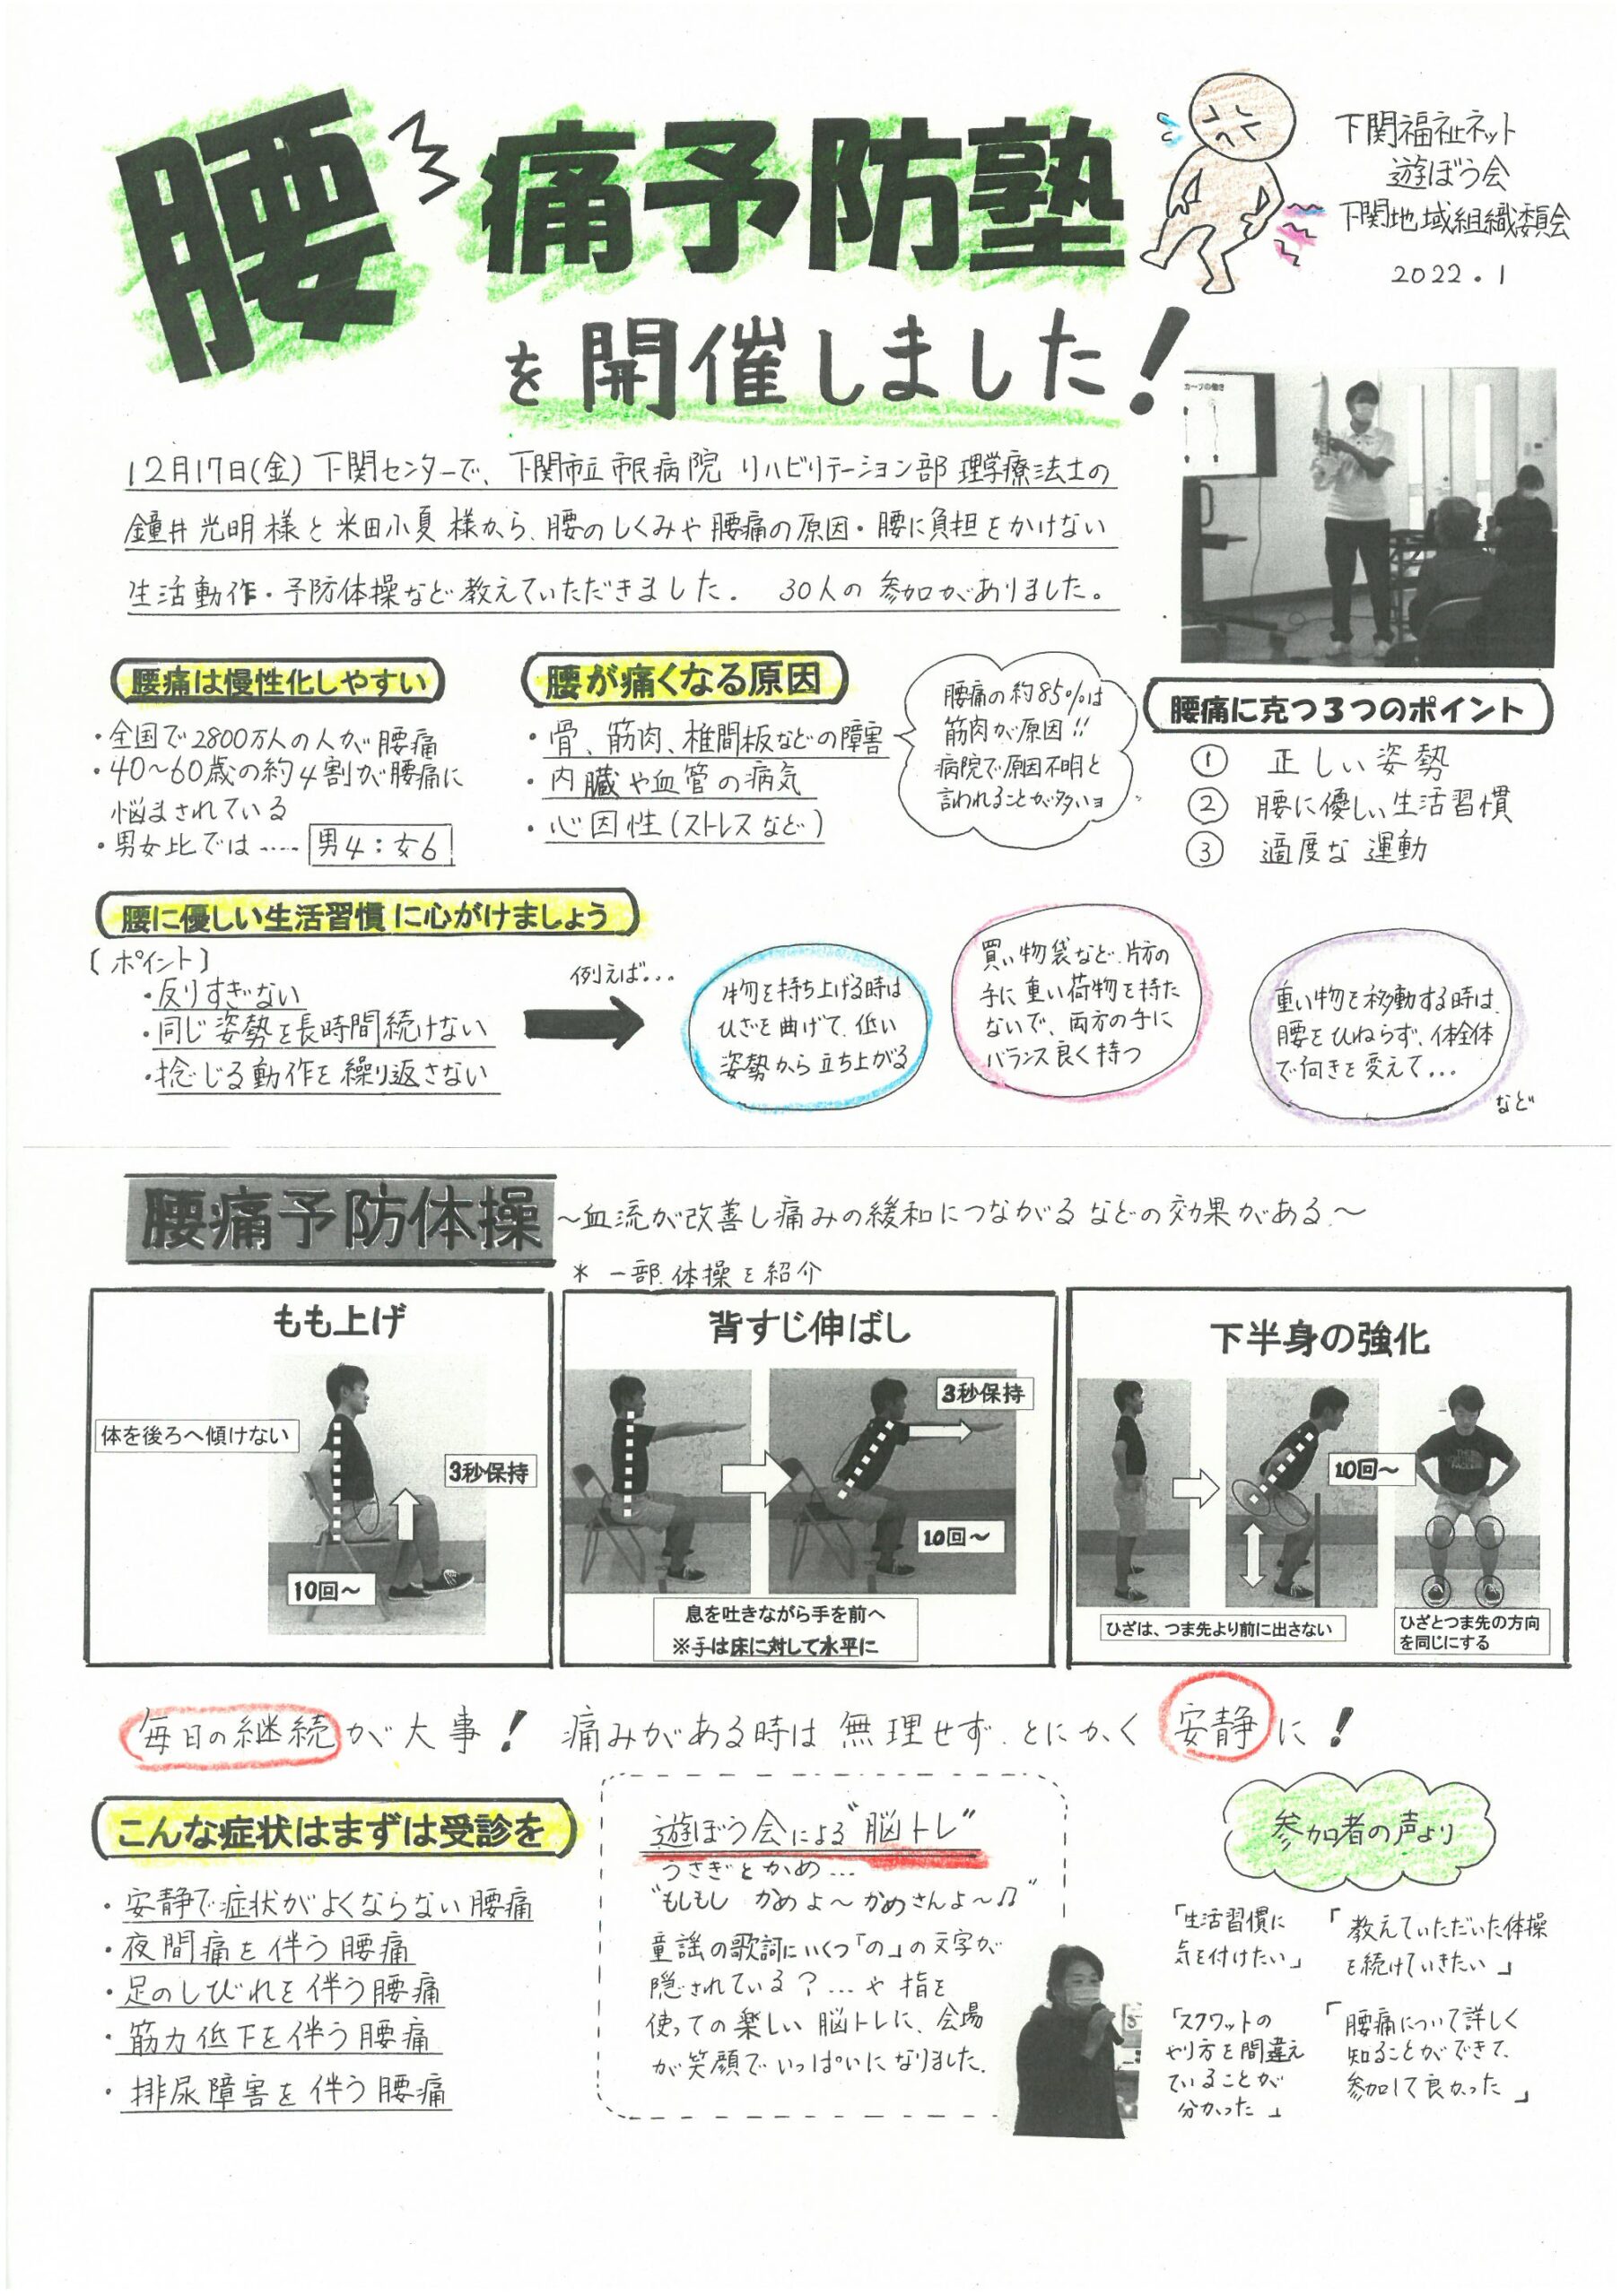 腰痛予防塾
を開催しました!
下関福祉ネット
遊ぼう会
下関地域組織委員会
2022.1
カーブの働き
12月17日(金)下関センターで、下関市立市民病院 リハビリテーション部 理学療法士の
鐘井光明様と米田小夏様から、腰のしくみや腰痛の原因・腰に負担をかけない
生活動作・予防体操など教えていただきました。 30人の参加がありました。
腰痛は慢性化しやすい
・全国で2800万人の人が腰痛
・40~60歳の約4割が腰痛に
悩まされている
・男女比では…… 男4:女6
腰が痛くなる原因
・骨、筋肉、椎間板などの障害
・内臓や血管の病気
・心因性(ストレスなど)
腰痛の約85%は
筋肉が原因!!
病院で原因不明と
言われることが多いョ
腰痛に克つ3つのポイント
① 正しい姿勢
② 腰に優しい生活習慣
③ 適度な運動
腰に優しい生活習慣に心がけましょう
〔ポイント〕
・反りすぎない
・同じ姿勢を長時間続けない
・捻じる動作を繰り返さない
例えば...
物を持ち上げる時は
ひざを曲げて、低い
姿勢から立ち上がる
買い物袋など、片方の
手に重い荷物を持た
ないで、両方の手に
バランス良く持つ
重い物を移動する時は、
腰をひねらず、体全体
で向きを変えて...
など
腰痛予防体操 ~血流が改善し痛みの緩和につながるなどの効果がある~
* 一部、体操を紹介
もも上げ
体を後ろへ傾けない
3秒保持
10回~
背すじ伸ばし
3秒保持
10回~
息を吐きながら手を前へ
※手は床に対して水平に
下半身の強化
10回~
ひざは、つま先より前に出さない
ひざとつま先の方向
を同じにする
毎日の継続が大事! 痛みがある時は無理せず、とにかく安静に!
こんな症状はまずは受診を
・安静で症状がよくならない腰痛
・夜間痛を伴う腰痛
・足のしびれを伴う腰痛
・筋力低下を伴う腰痛
・排尿障害を伴う腰痛
遊ぼう会による"脳トレ"
うさぎとかめ...
"もしもし かめよ~かめさんよ~♫"
童謡の歌詞にいくつ「の」の文字が
隠されている?...や指を
使っての楽しい脳トレに、会場
が笑顔でいっぱいになりました。
参加者の声より
「生活習慣に
気を付けたい」
「教えていただいた体操
を続けていきたい」
「スクワットの
やり方を間違え
ていることが
分かった」
「腰痛について詳しく
知ることができて、
参加して良かった」